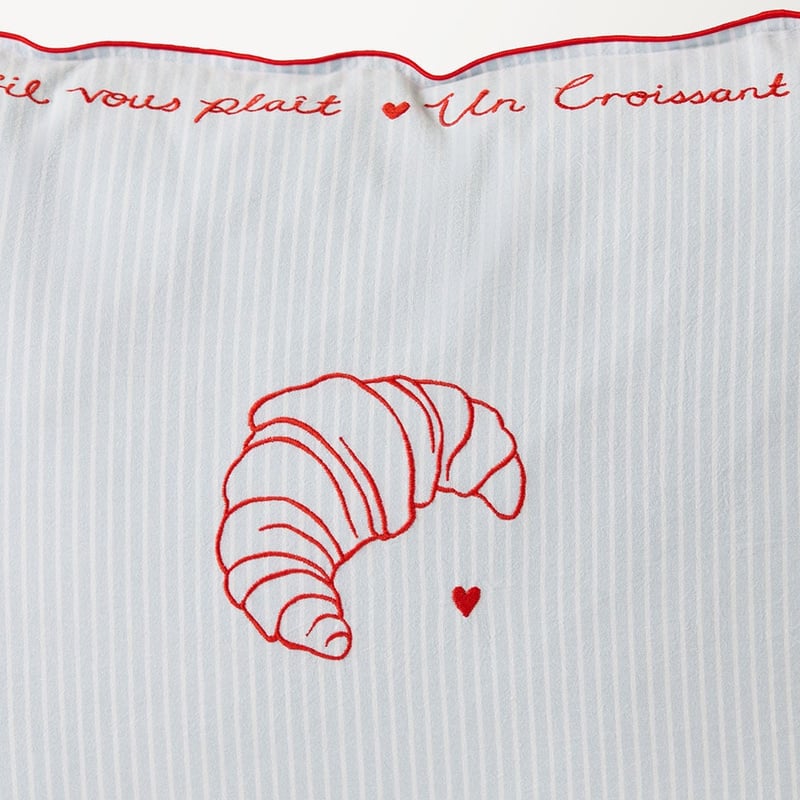 s'il vous plaît ♥ Un Croissant